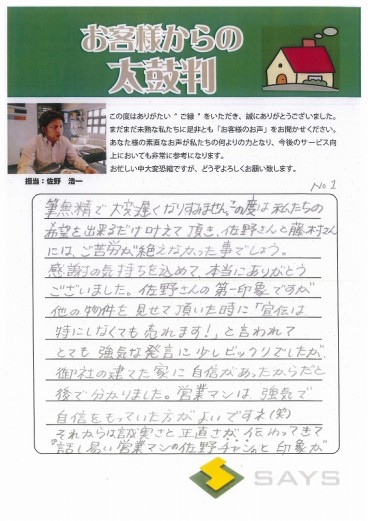 お客様からの
太鼓判
この度はありがたい“ご縁”をいただき、誠にありがとうございました。
まだまだ未熟な私たちに是非とも「お客様のお声」をお聞かせください。
あなた様の素直なお声が私たちの何よりの力となり、今後のサービス向
上においても非常に参考になります。
お忙しい中大変恐縮ですが、どうぞよろしくお願い致します。
担当：佐野 浩一
No 1
筆無精で大変遅くなりすみません。この度は私たちの
希望を出来るだけ叶えて頂き、佐野さんと藤村さん
には、ご苦労が絶えなかった事でしょう。
感謝の気持ちを込めて、本当にありがとう
ございました。佐野さんの第一印象ですが
他の物件を見せて頂いた時に「宣伝は
特にしなくても売れます！」と言われて
とても強気な発言に少しビックリでしたが、
御社の建てた家に自信があったからだと
後で分かりました。営業マンは強気で
自信をもっていた方がよいですネ(笑)
それからは誠実さと正直さが伝わってきて
『話し易い営業マンの佐野チャン』と印象が
SAYS